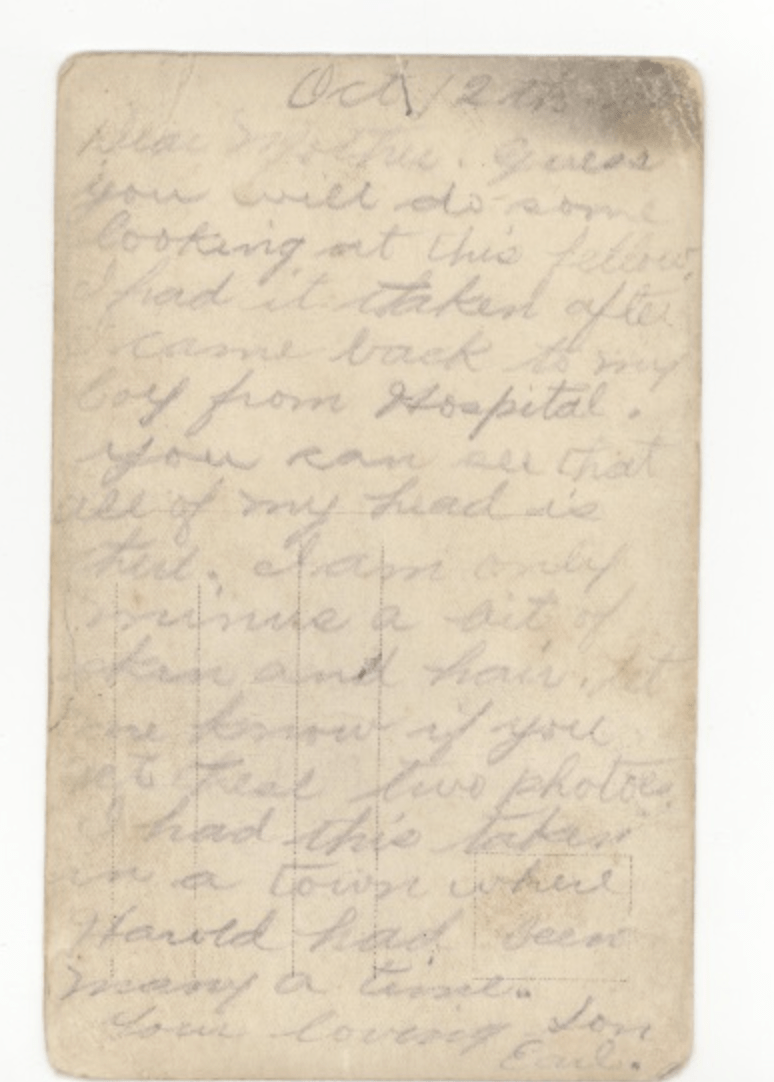 Oct 12th
Dear Mother. Guess
you will do some
looking at this fellow.
I had it taken after
I came back to my
boy from Hospital.
you can see that
all of my head is
there. I am only
minus a bit of
skin and hair. Let
me know if you
get these two photoes.
I had this taken
in a town where
Harold had been
many a time.
Your loving Son
Earl.